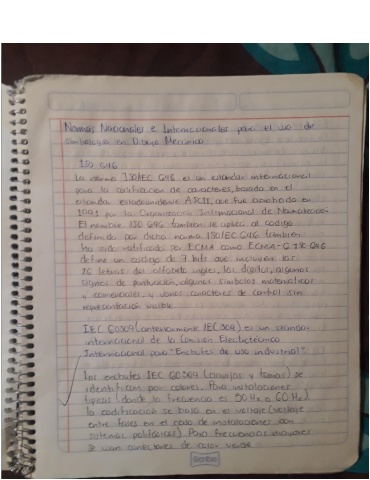 Normas Nacionales e Internacionales para el uso de
simbología en Dibujo Mecánico
ISO 646
La norma ISO/IEC 646 es un estándar internacional
para la codificación de caracteres, basada en el
estándar estadounidense ASCII, que fue aprobada en
por la Organización Internacional de
El nombre ISO 646 también se aplica al código
definido por dicha norma ISO/IEC 646 también
ha sido ratificado por ECMA como ECMA-6 ISO 646
define un código de 7 bits que incluyen las
26 letras del alfabeto inglés, los dígitos, algunos
signos de puntuación, algunos símbolos matemáticos
y comerciales y varios caracteres de control sin
representación visible
IEC 60309 (anteriormente IEC 309) es un estándar
internacional de la Comisión Electrotécnica
Internacional para "Enchufes de uso industrial"
Los enchufes IEC 60309 (clavijas y tomas) se
identifican por colores. Para instalaciones
típicas (donde la frecuencia es 50 Hz o 60 Hz)
la codificación se basa en el voltaje (voltaje
entre fases en el caso de instalaciones con
sistemas polifásicos). Para frecuencias mayores
se usan conectores de color verde
Scribe